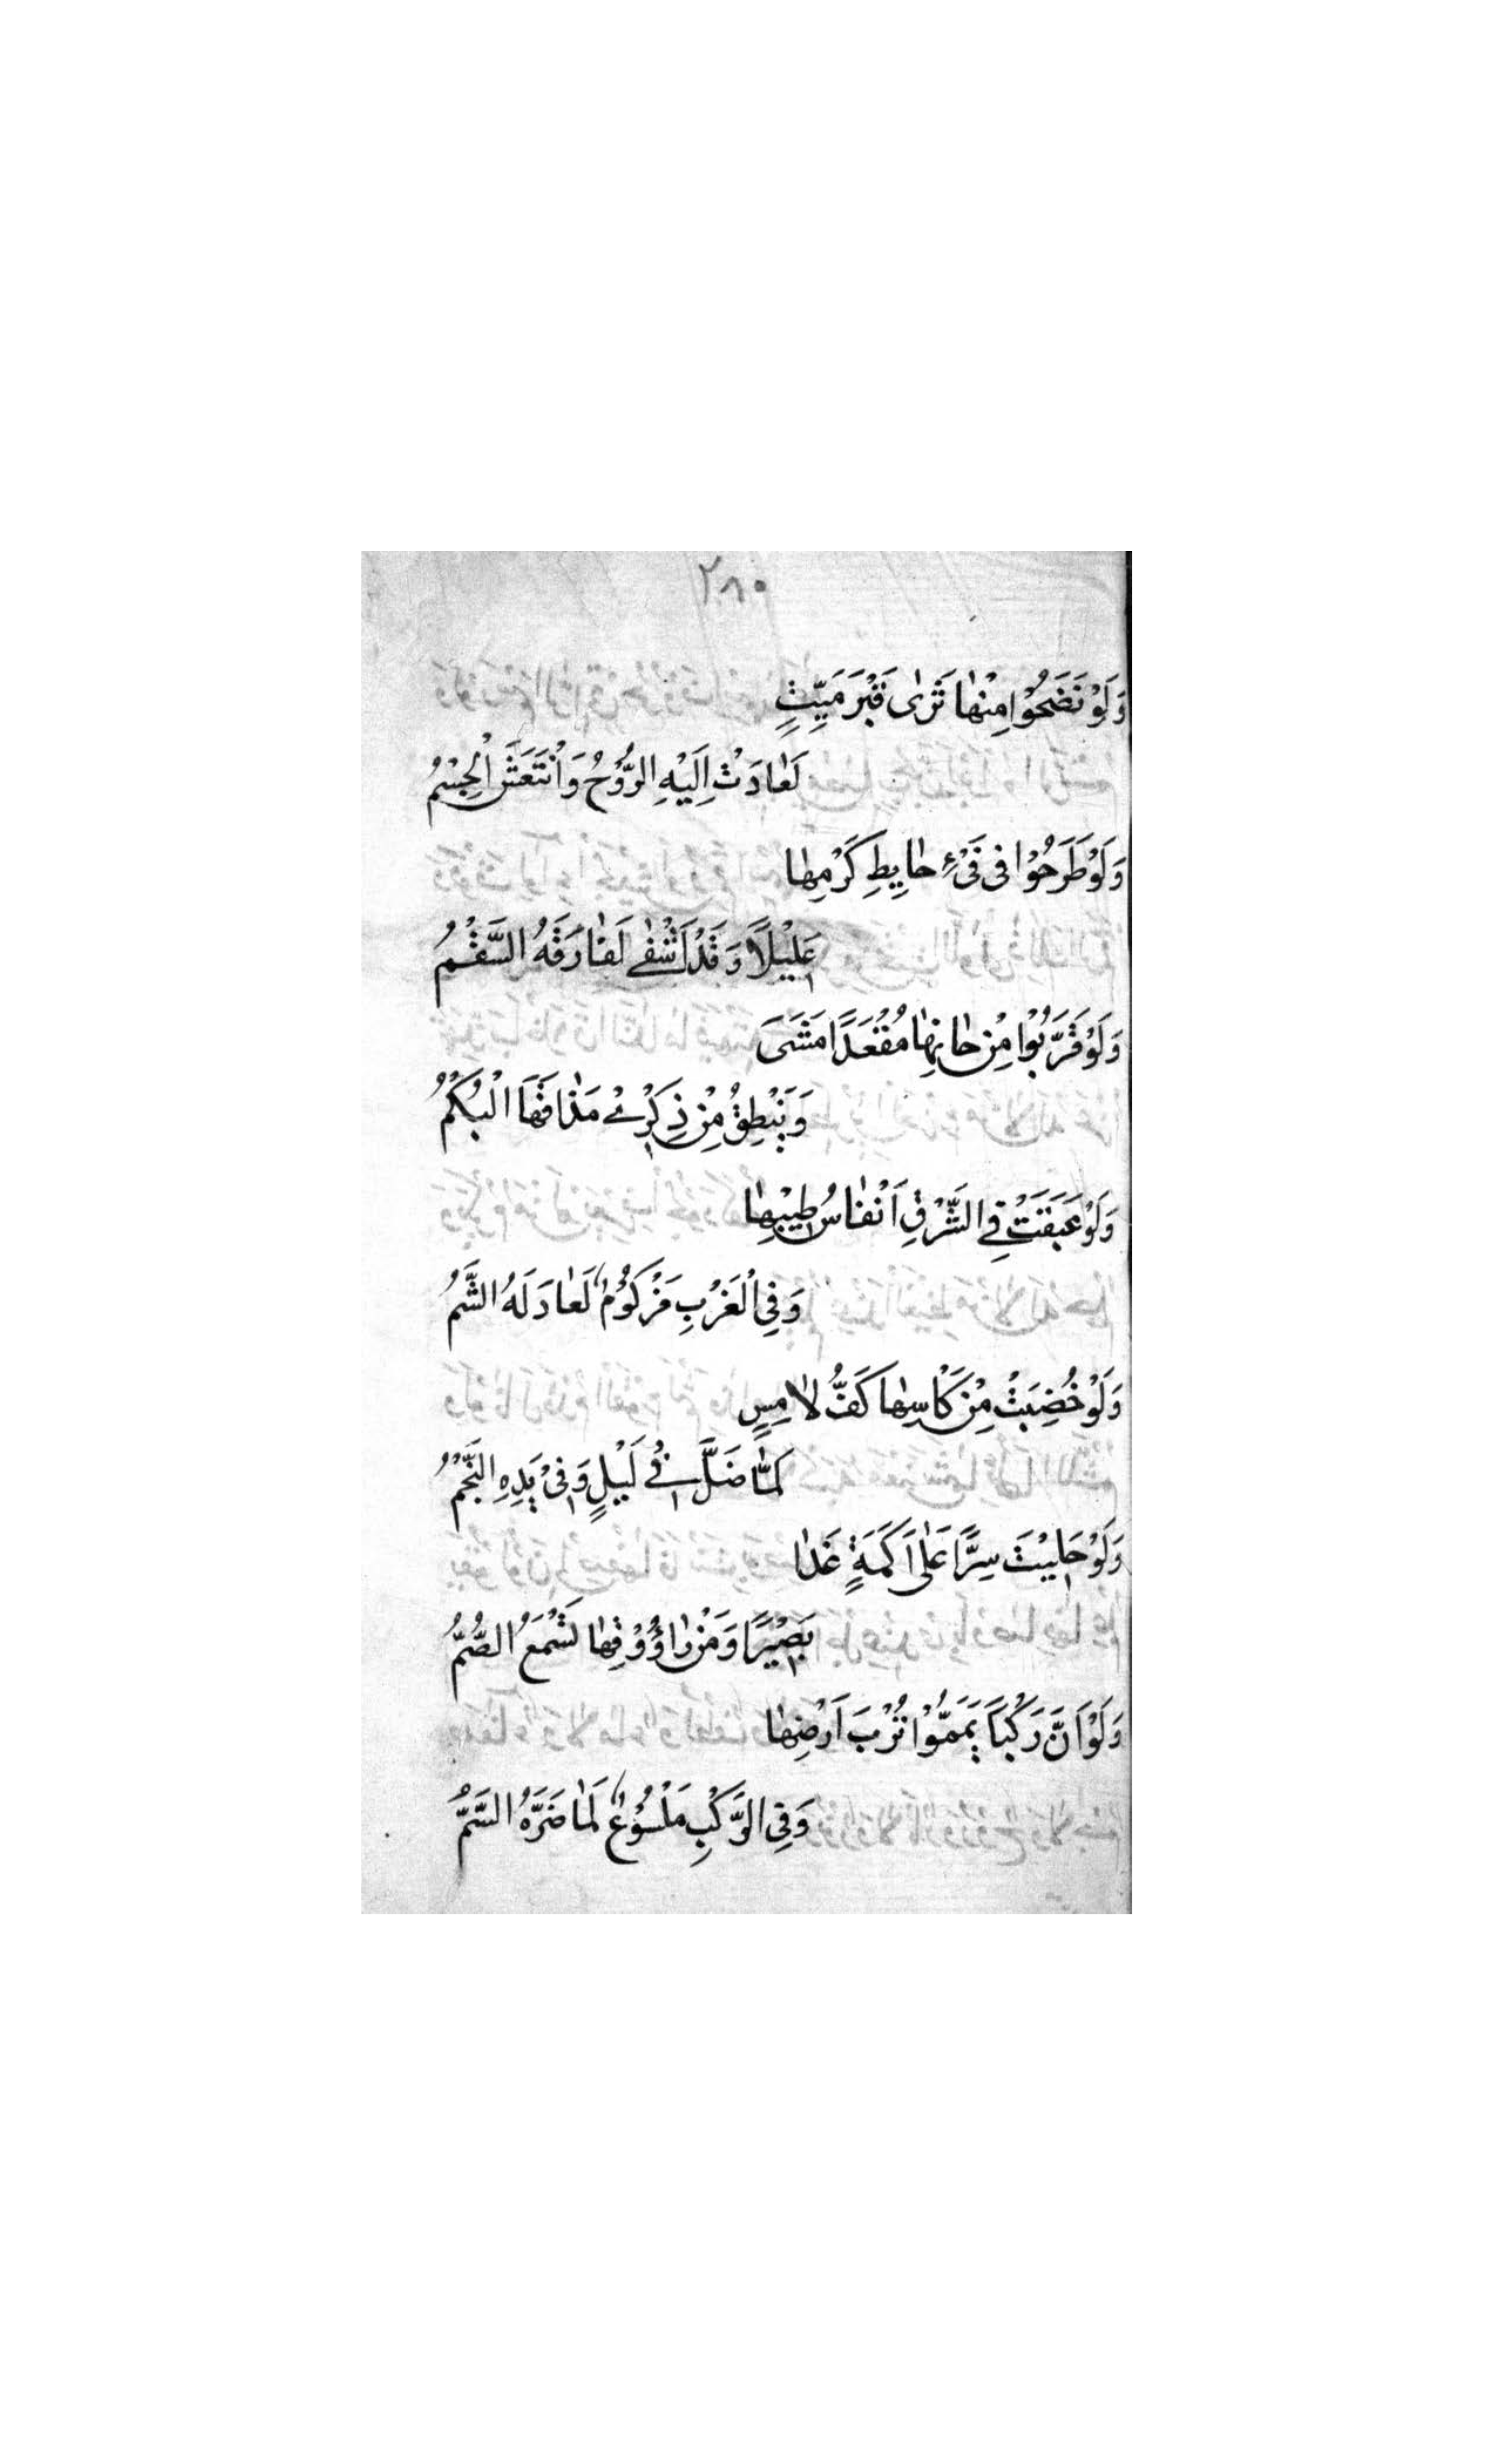 ٢٨٠
وَلَوْ نَضَحُوْا مِنْهٰا ثَرٰى قَبْرَ مَيِّتٍ
لَعٰادَتْ اِلَيْهِ الرُّوْحُ وَاْنْتَعَشَ الْجِسْمُ
وَلَوْ طَرَحُوْا فى فَىْءِ حٰايِطِ كَرْمِهٰا
عَلِيْلًا وَقَدْ اَشْفٰى لَفٰارَقَهُ السَّقْمُ
وَلَوْ قَرَّبُوْا مِنْ حٰانِهٰا مُقْعَدًا مَشَىَ
وَيَنْطِقُ مِنْ ذِكْرٰىْ مَذٰاقَهَا الْبُكْمُ
وَلَوْ عَبَقَتْ فِي الشَّرْقِ اَنْفٰاسُ طِيْبِهٰا
وَفِى الْغَرْبِ مَزْكُوْمٌ لَعٰادَ لَهُ الشَّمُ
وَلَوْ خُضِبَتْ مِنْ كَاْسِهٰا كَفُّ لاٰمِسٍ
لَمٰا ضَلَّ فِىْ لَيْلٍ وَفِىْ يَدِهِ النَّجْمُ
وَلَوْ جَلِيْتَ سِرًّا عَلٰى اَكَمَةٍ غَدٰا
بَصِيْرًا وَمَنْ رٰاؤُوْقِهٰا تَسْمَعُ الصُّمُّ
وَلَوْ اَنَّ رَكْبًا يَمَمَّوُْا تُرْبَ اَرْضِهٰا
وَفِى الرَّكْبِ مَلْسُوْعٌ لَمٰا ضَرَّهُ السَّمُّ